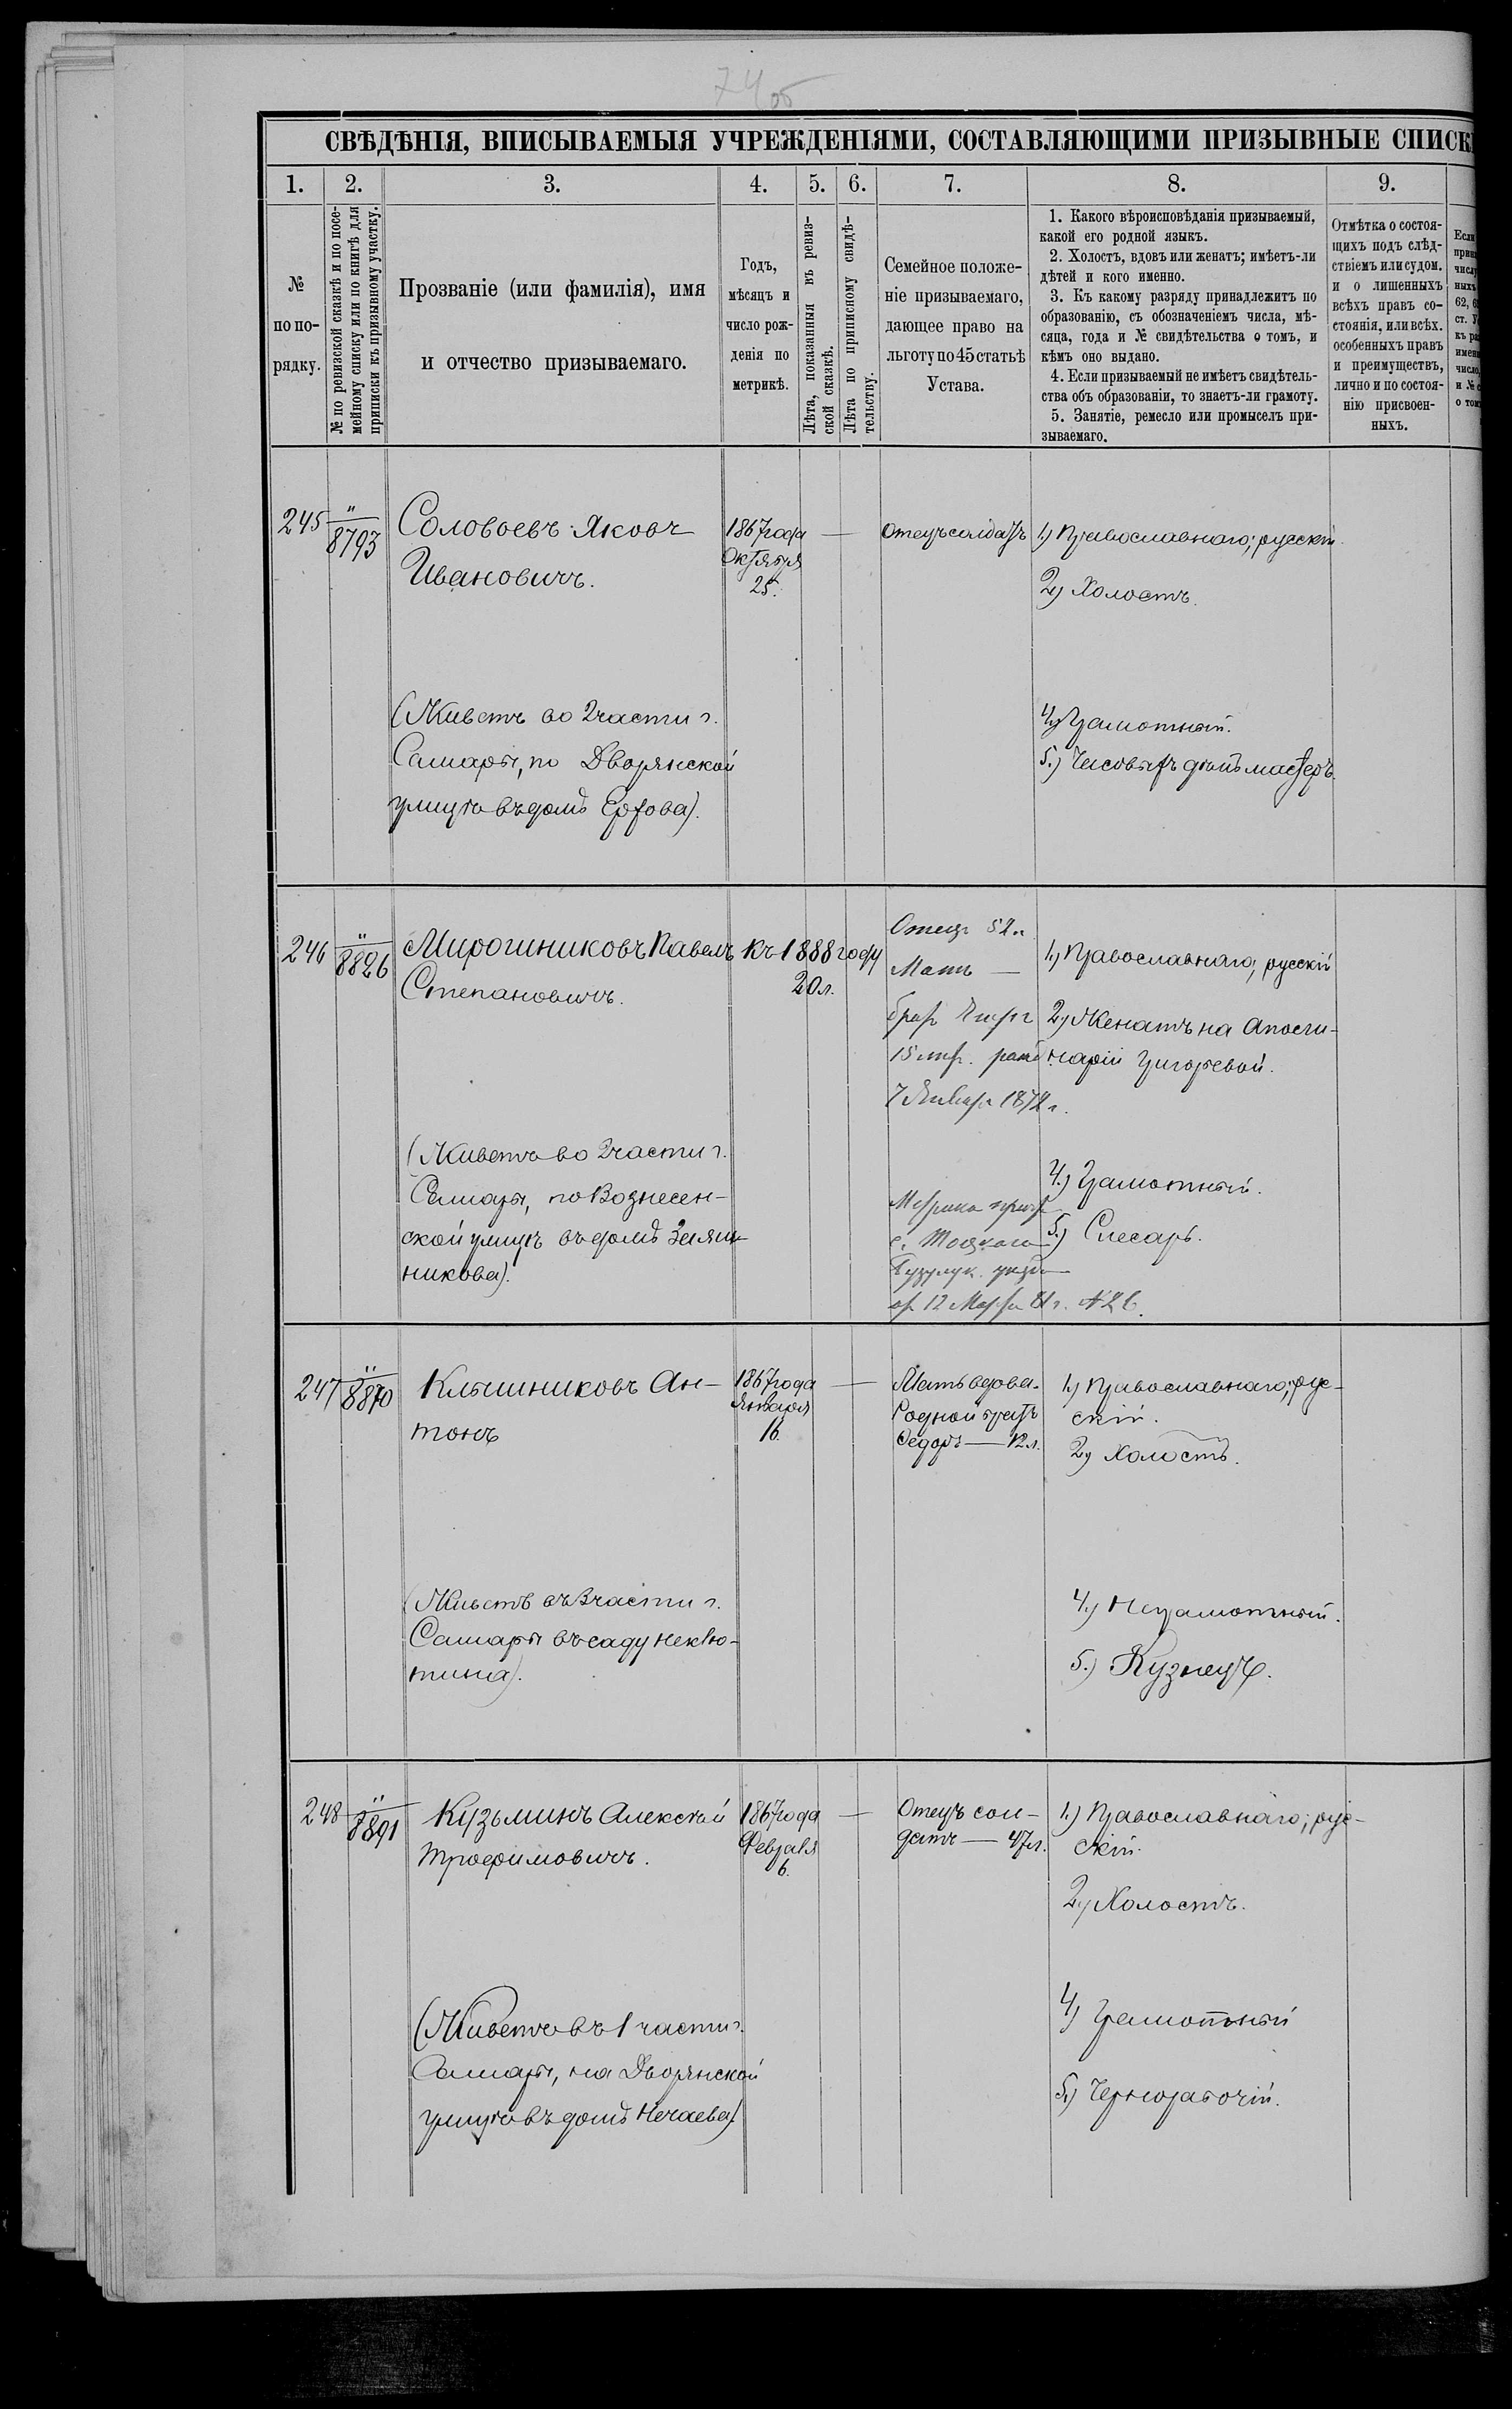 74об
СВѢДѢНІЯ, ВПИСЫВАЕМЫЯ УЧРЕЖДЕНІЯМИ, СОСТАВЛЯЮЩИМИ ПРИЗЫВНЫЕ СПИСК
1.
2.
3.
4.
5.
6.
7.
8.
9.
№
по по-
рядку.
№ по ревизской сказкѣ и по посе-
мейному списку или по книгѣ для
приписки къ призывному участку.
Прозваніе (или фамилія), имя
и отчество призываемаго.
Годъ,
мѣсяцъ и
число рож-
денія по
метрикѣ.
Лѣта, показанныя въ ревиз-
ской сказкѣ.
Лѣта по приписному свидѣ-
тельству.
Семейное положе-
ніе призываемаго,
дающее право на
льготу по 45 статьѣ
Устава.
1. Какого вѣроисповѣданія призываемый,
какой его родной языкъ.
2. Холостъ, вдовъ или женатъ; имѣетъ-ли
дѣтей и кого именно.
3. Къ какому разряду принадлежитъ по
образованію, съ обозначеніемъ числа, мѣ-
сяца, года и № свидѣтельства о томъ, и
кѣмъ оно выдано.
4. Если призываемый не имѣетъ свидѣтель-
ства объ образованіи, то знаетъ-ли грамоту.
5. Занятіе, ремесло или промыселъ при-
зываемаго.
Отмѣтка о состоя-
щихъ подъ слѣд-
ствіемъ или судом.
и о лишенныхъ
всѣхъ правъ со-
стоянія, или всѣх.
особенныхъ правъ
и преимуществъ,
лично и по состоя-
нію присвоен-
ныхъ.
Если
числу
ныхъ
62, 6
ст. У
къ ра
имен
число,
и № с
о том
245
"
8793
Соловьевъ Яковъ
Ивановичъ.
1867 года
Октября
25.
—
Отецъ солдатъ
1.) Православнаго; русскій
2.) Холостъ.
(Живетъ во 2 части г.
Самары, по Дворянской
улицѣ въ домѣ
4.) Грамотный.
5.) Часовыхъ дѣлъ мастеръ.
246
"
8826
Мирошниковъ Павелъ
Степановичъ.
Къ 1888 году
20 л.
Отецъ 52 л.
Мать —
братъ
15
7 Января 1872 г.
1.) Православнаго; русскій
2.) Женатъ на Аполи-
наріи Григорьевой.
(Живетъ во 2 части г.
Самары, по Вознесен-
ской улицѣ въ домѣ
никова).
Метрика
с. Тоцкаго
Бузулук. уѣзда
от 12 Марта
4.) Грамотный.
5.) Слесарь.
247
"
8870
Клышниковъ Ан-
тонъ
1867 года
Января
16.
—
Мать вдова.
Родной братъ
Федоръ — 12 л.
1.) Православнаго; рус-
скій.
2.) Холостъ.
(Живетъ въ 3 части г.
Самары въ саду Неклю-
тина).
4.) Неграмотный.
5.) Кузнецъ.
248
"
8891
Кузьминъ Алексѣй
Трофимовичъ.
1867 года
Февраля
6.
—
Отецъ сол-
датъ — 47 л.
1.) Православнаго; рус-
скій.
2.) Холостъ.
(Живетъ въ 1 части г.
Самары, на Дворянской
улицѣ въ домѣ Нечаева)
4.) Грамотный
5.) Чернорабочій.